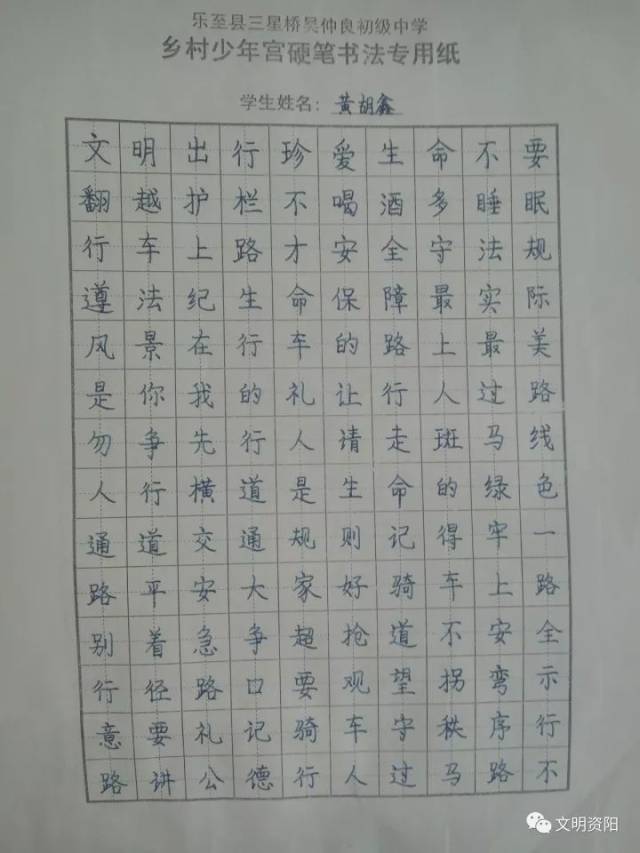 乐至县三星桥吴仲良初级中学
乡村少年宫硬笔书法专用纸
学生姓名：黄胡鑫
文明出行珍爱生命不要
翻越护栏不喝酒多睡眠
行车上路才安全守法规
遵法纪生命保障最实际
风景在行车的路上最美
是你我的礼让行人过路
勿争先行人请走斑马线
人行横道是生命的绿色
通道交通规则记得牢一
路平安大家好骑车上路
别着急争超抢道不安全
行径路口要观望拐弯示
意要礼记骑车守秩序行
路讲公德行人过马路不
文明资阳